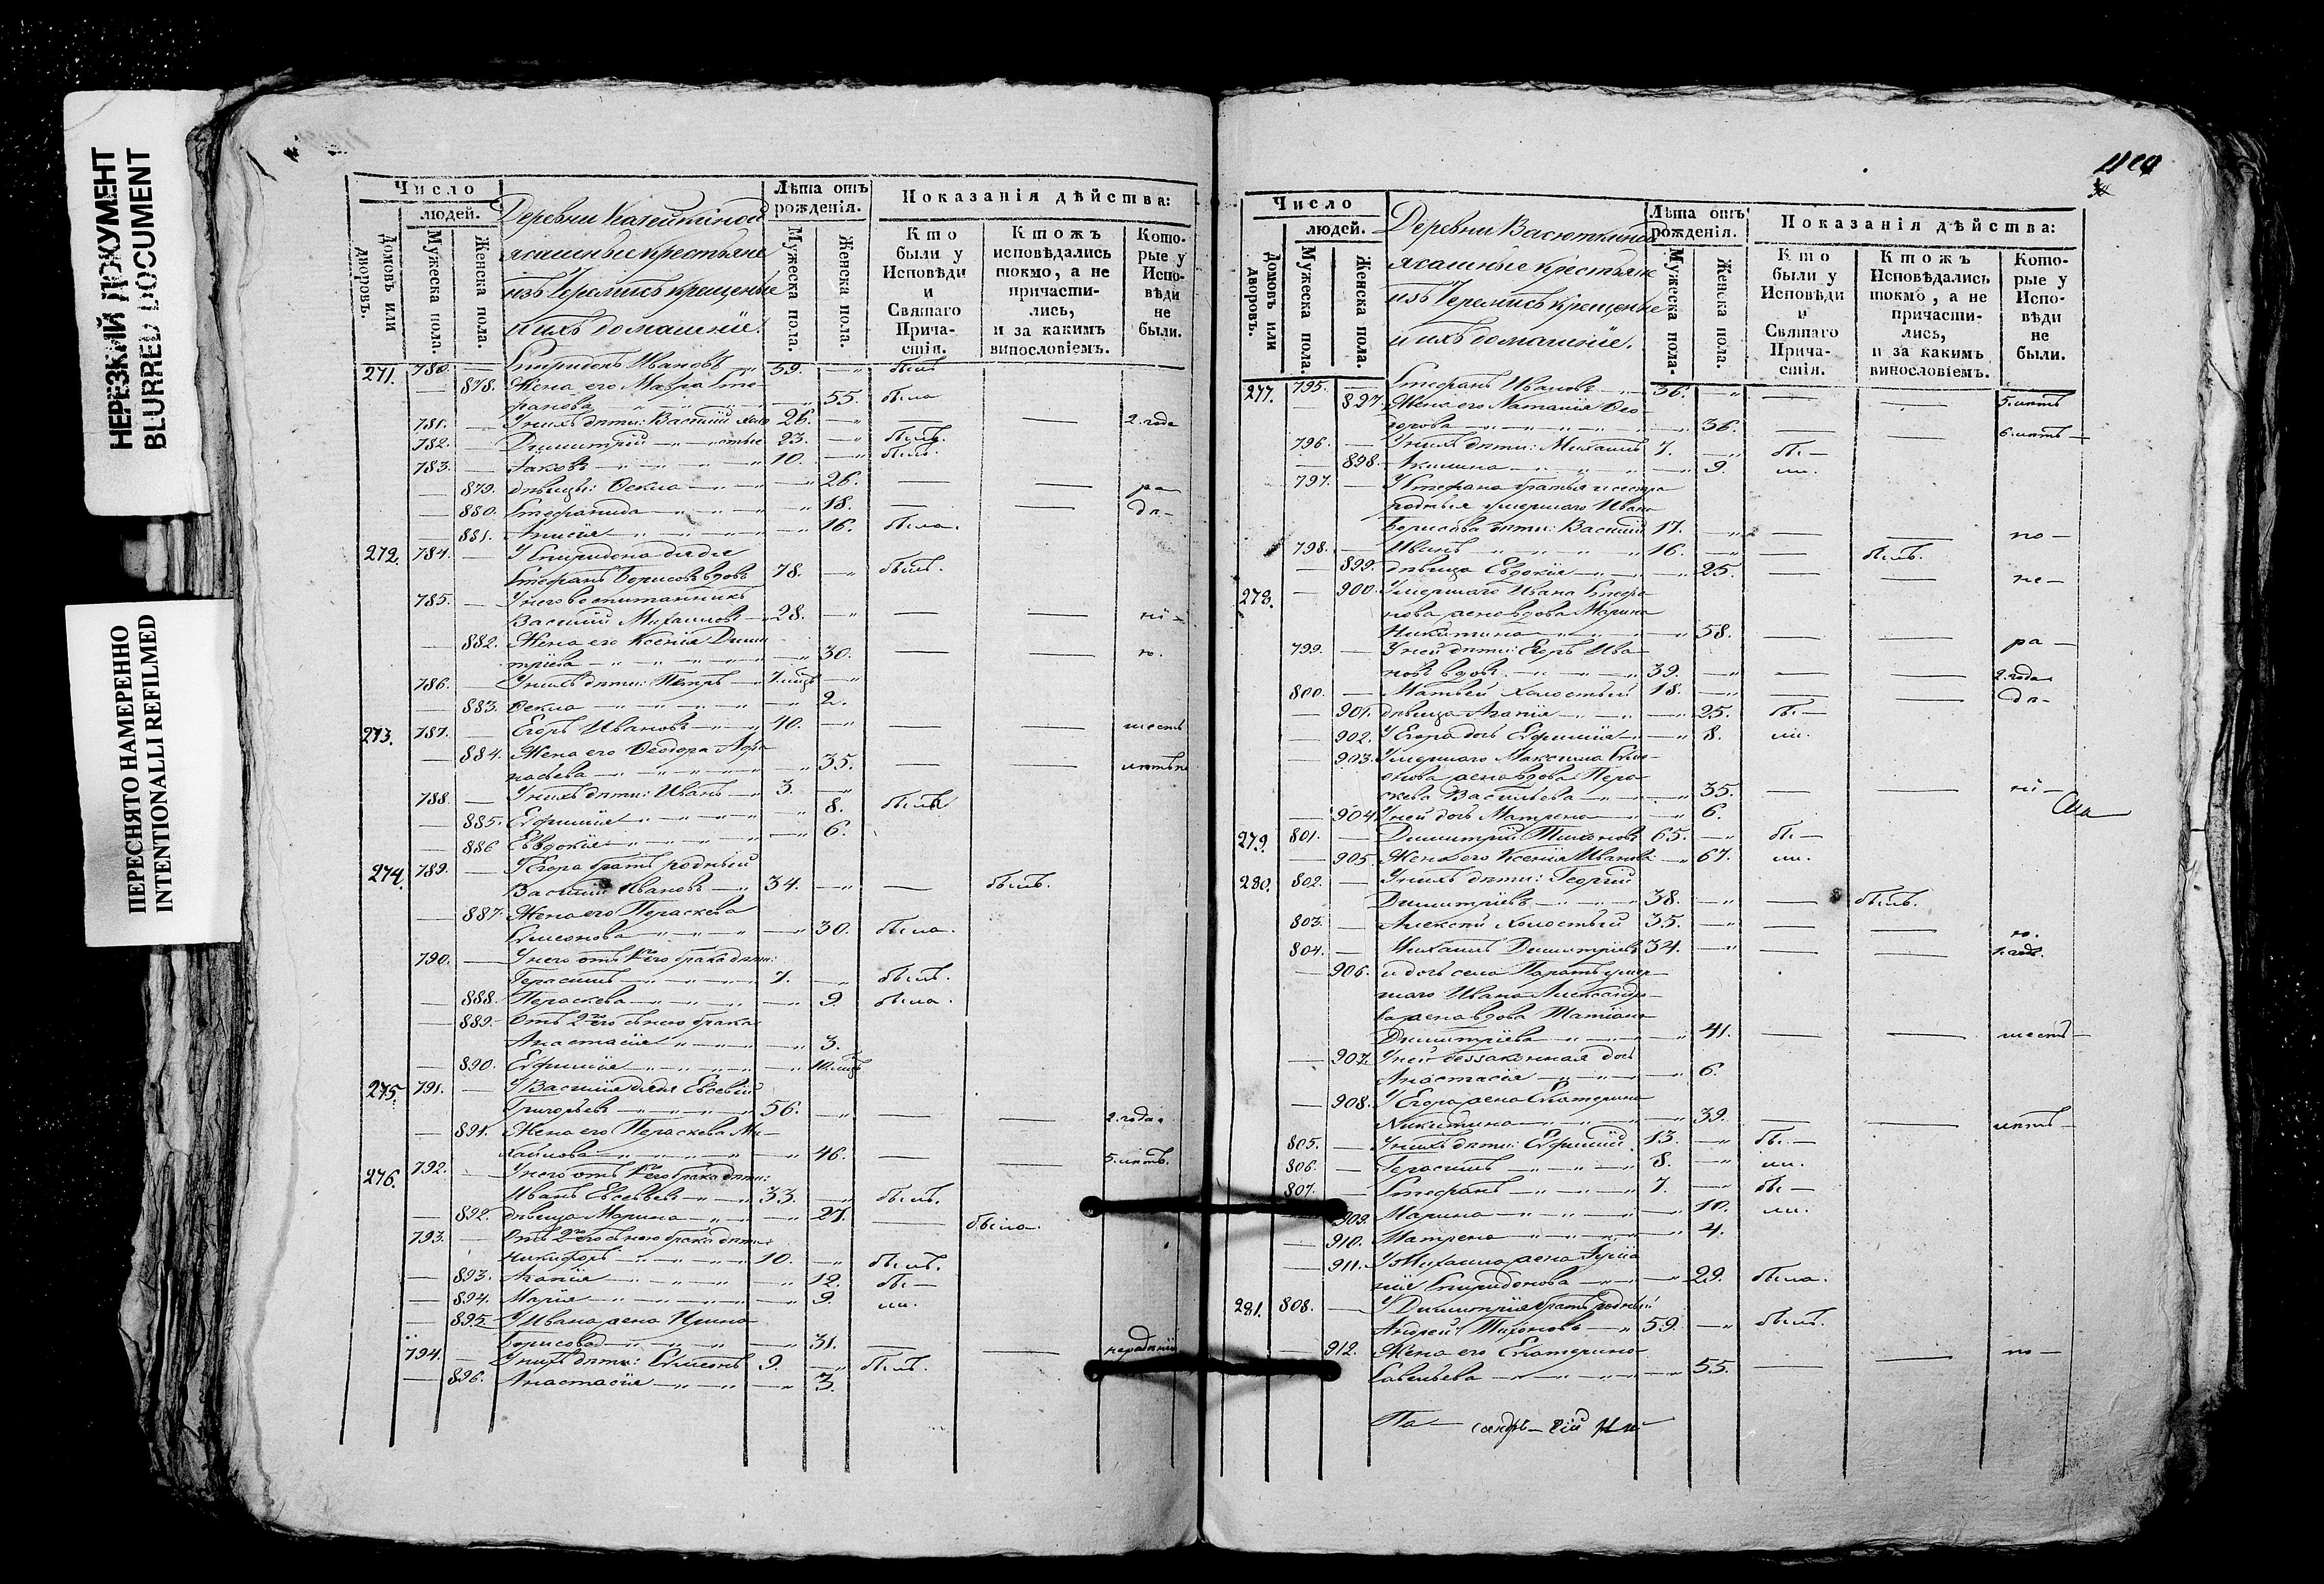 НЕРЕЗКИЙ ДОКУМЕНТ
BLURRED DOCUMENT
ПЕРЕСНЯТО НАМЕРЕННО
INTENTIONALLI REFILMED
Число
людей.
Домовъ или дворовъ.
Мужеска пола.
Женска пола.
Деревни
ясашные крестьяне
изъ Черемисъ крещеные
и ихъ домашніе.
Лѣта отъ рожденія.
Мужеска пола.
Женска пола.
Показанія дѣйства:
Кто были у Исповѣди и Святаго Причастія.
Ктожъ исповѣдались токмо, а не причастились, и за какимъ винословіемъ.
Которые у Исповѣди не были.
271. 780. — Спиридонъ Ивановъ 59. — былъ
— 878. Жена его Мавра Сте-
фанова — 55. была
781. — У нихъ дѣти: Василій 26. — — 2. года
782. — Димитрій 23. — былъ.
783. — Іаковъ 10. — былъ.
— 879. дѣвицы: Ѳекла — 26. — —
880. Стефанида — 18. — —
881. Анисія — 16. была.
272. 784. — У Спиридона дядя
Стефанъ Борисовъ вдовъ 78. — былъ.
785. — У него воспитанникъ
Василій Михайловъ 28. — — —
— 882. Жена его Ксенія Дими-
тріева — 30. — —
786. — У нихъ дѣти: Петръ
— 883. Ѳекла — 2.
273. 787. — Егоръ Ивановъ 40. — — — шесть
— 884. Жена его Ѳеодора
— 35. — —
788. — У нихъ дѣти: Иванъ 3.
— 885. Евфимія — 8.
— 886 Евдокія — 6.
274. 789. — У Егора братъ родный
Василій Ивановъ 34. — — былъ.
— 887. Жена его Параскева
Симеонова — 30. была.
790. — У него отъ 1го брака дѣти:
Герасимъ 7. — былъ.
— 888. Параскева — 9. была.
— 889. Отъ 2го брака
Анастасія — 3.
— 890. Евфимія
275. 791. — У Василія дядя Евсевій
Григорьевъ 56. — — — 2. года.
— 891. Жена его Параскева Ми-
хайлова — 46. — — 5. лѣтъ.
276. 792. — У него отъ 1го брака дѣти:
Иванъ Евсевьевъ 33. — былъ.
— 892. дѣвица Марина — 27. — была.
793. — Отъ 2го брака дѣти
Никифоръ 10. — былъ.
— 893. Агапія — 12. бы—
— 894. Марія — 9. ли.
— 895. У Ивана жена Ирина
Борисова — 31. — —
794. — У нихъ дѣти: Симеонъ 9. — былъ.
— 896. Анастасія — 3.
Число
людей.
Домовъ или дворовъ.
Мужеска пола.
Женска пола.
Деревни Васюткиной
ясашные крестьяне
изъ Черемисъ крещеные
и ихъ домашніе.
Лѣта отъ рожденія.
Мужеска пола.
Женска пола.
Показанія дѣйства:
Кто были у Исповѣди и Святаго Причастія.
Ктожъ Исповѣдались токмо, а не причастились, и за какимъ винословіемъ.
Которые у Исповѣди не были.
277. 795. — Стефанъ Ивановъ 36. — — — 5. лѣтъ
— 897. Жена его Наталія Ѳео-
дорова — 36. — — 6. лѣтъ —
796. — У нихъ дѣти: Михаилъ 7. — бы—
— 898. Акилина — 9. ли.
797. — У Стефана братья и сестра
родныя умершаго Ивана
Борисова дѣти: Василій 17. — — — по—
798. — Иванъ 16. — — былъ.
— 899. дѣвица Евдокія — 25. — — не—
278. — 900. Умершаго Ивана Стефа-
нова жена вдова Марина
Никитина — 58. — — ра—
799. — У ней дѣти: Егоръ Ива-
новъ вдовъ 39. — — — 2. года
800. — Матвей холостый 18. — — — дѣ—
— 901. дѣвица Агапія — 25. бы—
— 902. У Егора дочь Евфимія — 8. ли.
— 903. Умершаго Максима Сим-
онова жена вдова Пара-
скева Васильева — 35. — — ні—
— 904. У ней дочь Матрена — 6.
279. 801. — Димитрій Тихоновъ 65. — бы—
— 905. Жена его Ксенія Иванова — 67. ли.
280. 802. — У нихъ дѣти: Георгій
Димитріевъ 38. — — былъ.
803. — Алексѣй холостый 35. — — — ю.
804. — Михаилъ Димитріевъ 34. — — —
— 906. и дочь села Паратъ умер-
шаго Ивана Александро-
ва жена вдова Татіана
Димитріева — 41. — — шесть—
— 907. У ней беззаконная дочь
Анастасія — 6.
— 908. У Егора жена Екатерина
Никитина — 39. — — лѣтъ—
805. — У нихъ дѣти: Евфимій 13. — бы—
806. — Герасимъ 8. — ли.
807. — Стефанъ 7. — бы—
909. Марина — 10. ли.
— 910. Матрена — 4.
— 911. У Михаила жена
Спиридонова — 29. была.
281. 808. — У Димитрія братъ родный
Андрей Тихоновъ 59. — былъ.
— 912. Жена его Екатерина
Савельева — 55. — — по—